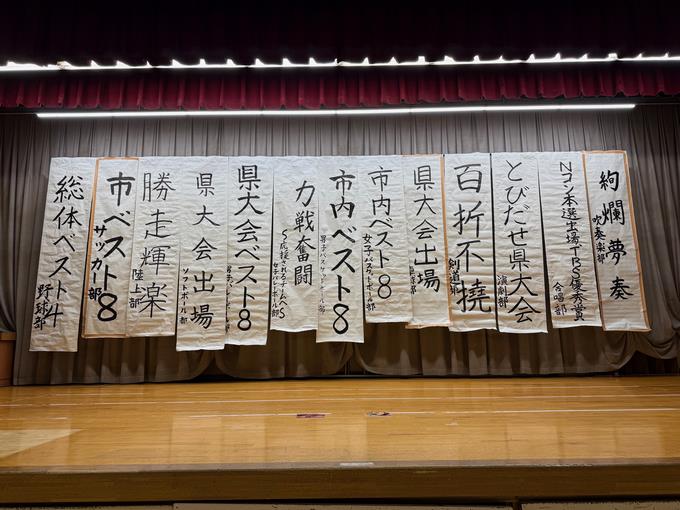 絢爛夢奏
吹奏楽部
Nコン本選出場TBS優秀賞
合唱部
とびだせ県大会
演劇部
百折不撓
剣道部
県大会出場
市内ベスト8
女子バスケットボール部
市内ベスト8
男子バスケットボール部
力戦奮闘
~応援されるチームへ~
女子バレーボール部
県大会ベスト8
男子バレーボール部
県大会出場
ソフトボール部
勝走輝楽
陸上部
市ベスト8
サッカー部
総体ベスト4
野球部